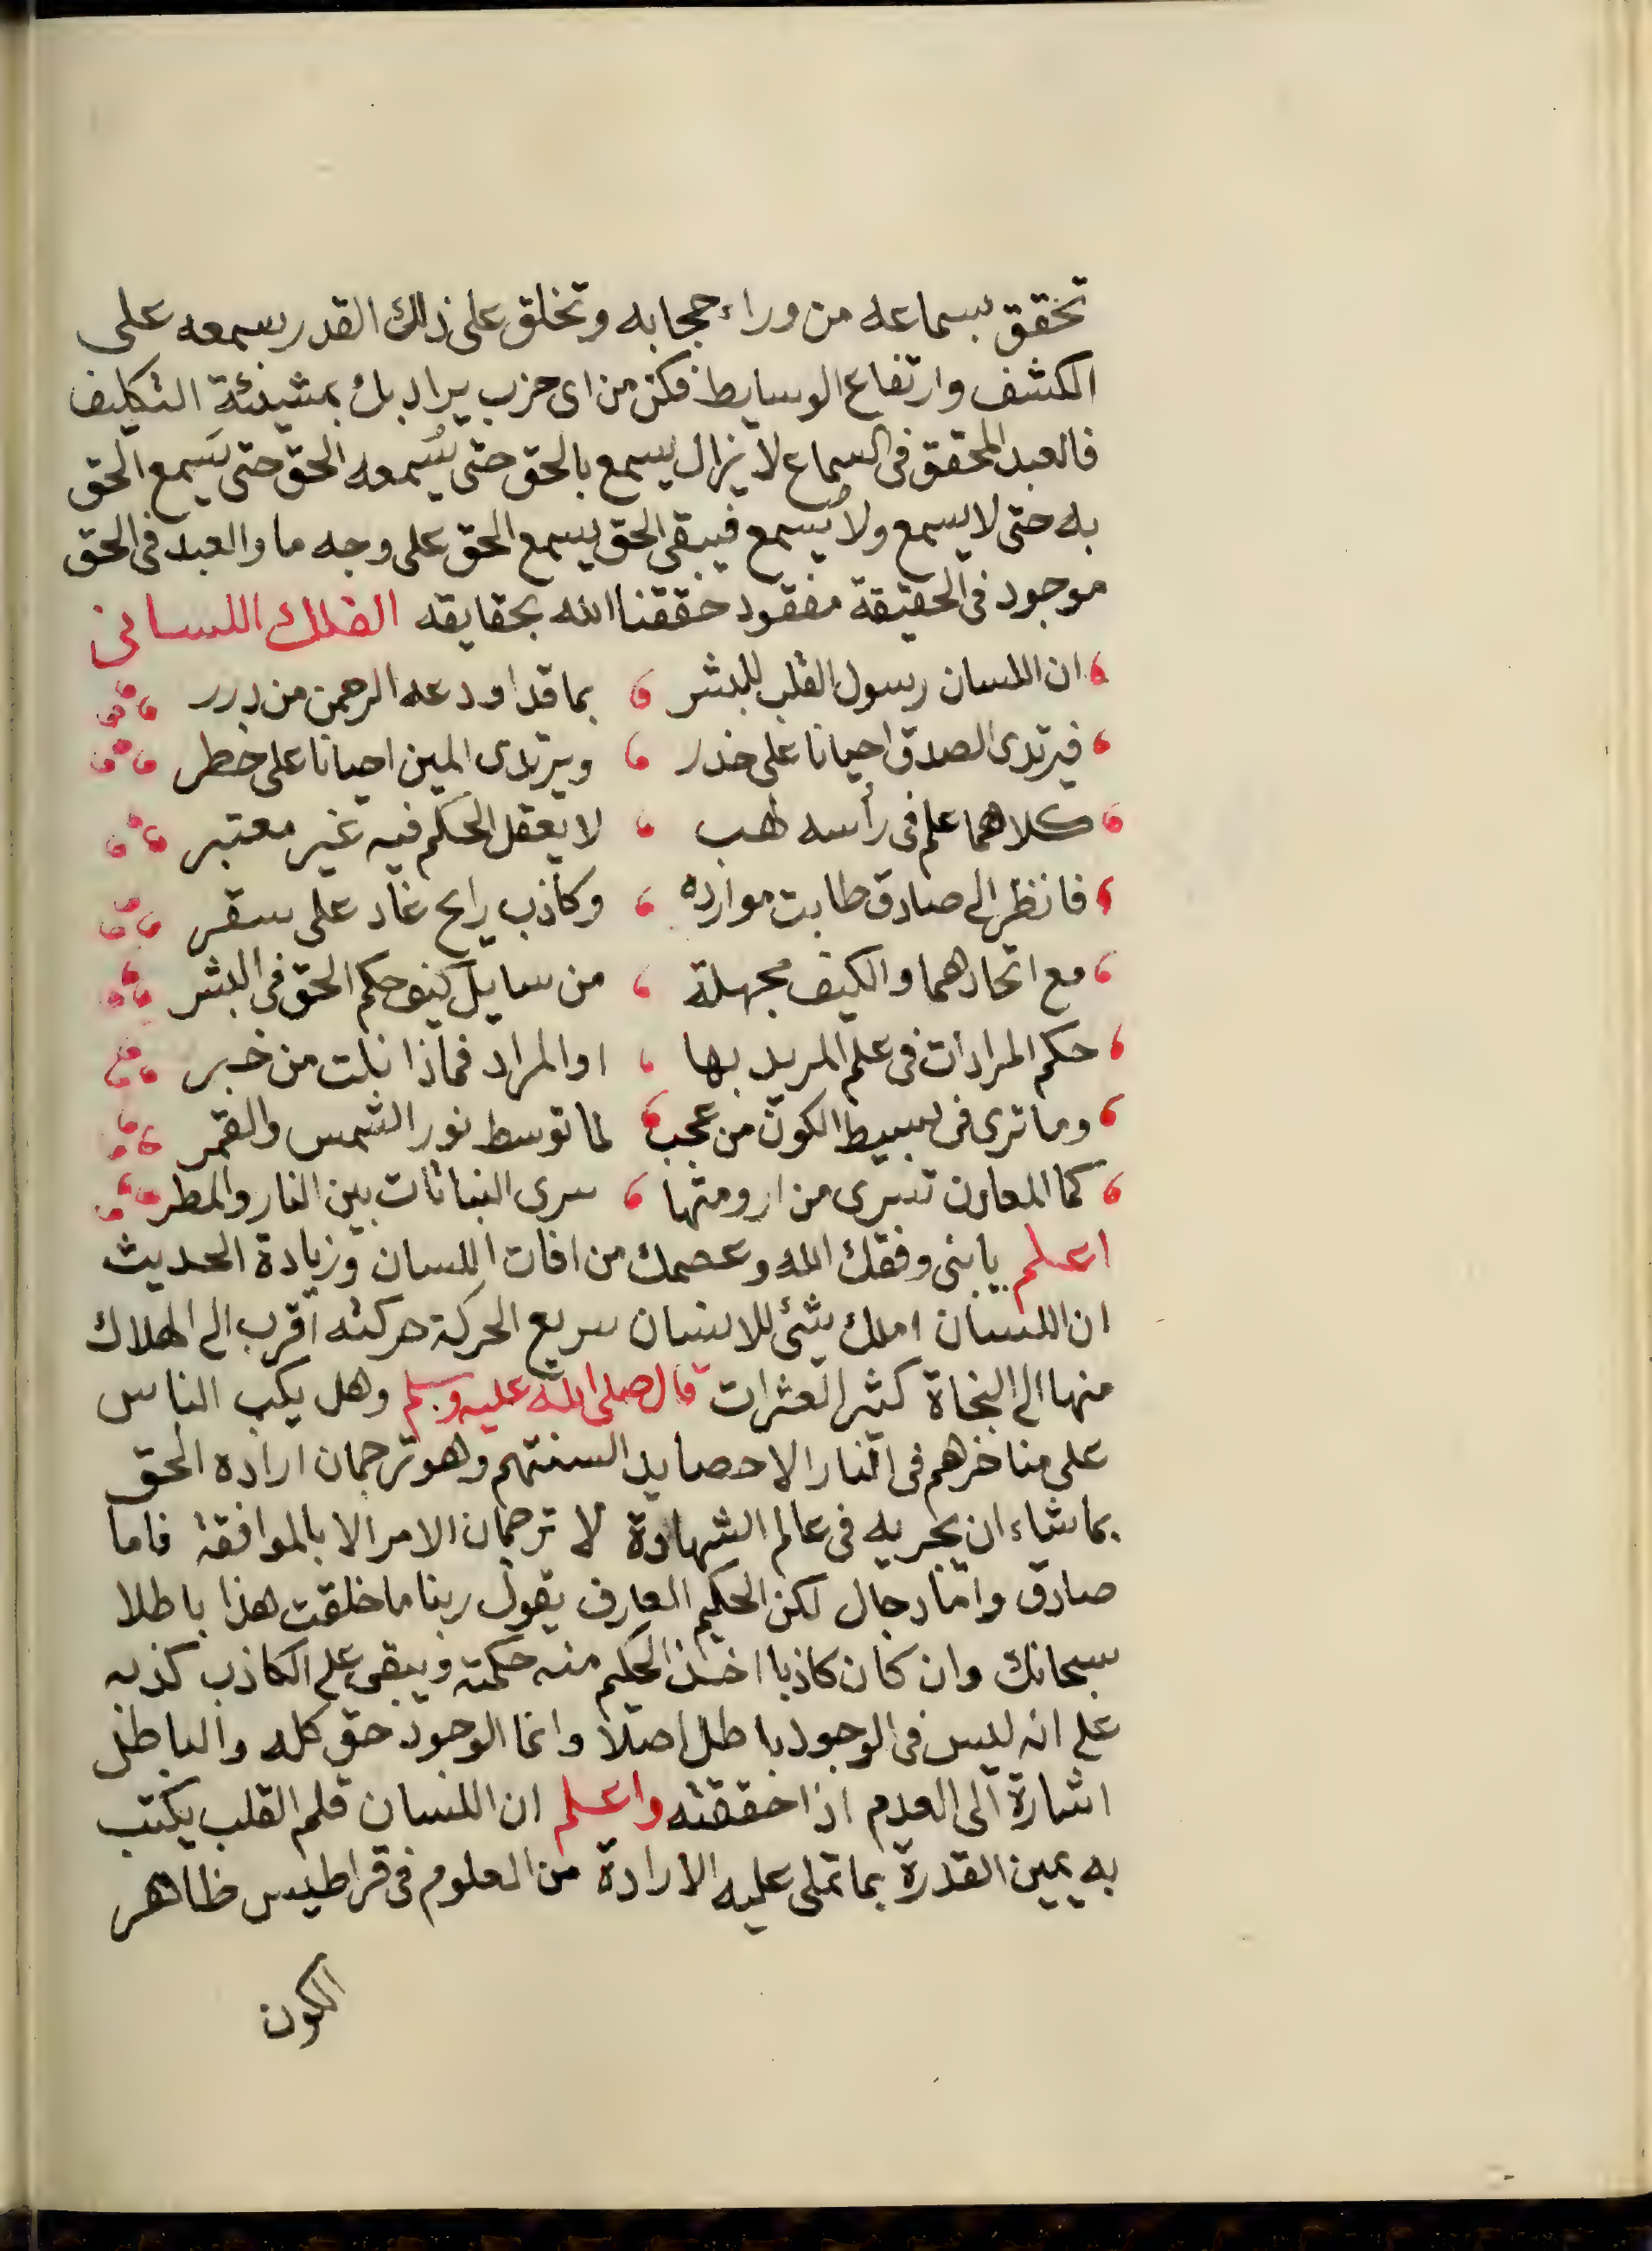 تحقق بسماعه من وراء حجابه وتخلق على ذلك القدر يسمعه على
الكشف وارتفاع الوسايط فكن من اى حزب يراد بك بمشيئة التكليف
فالعبد المحقق فى السماع لا يزال يسمع بالحق حتى يُسمعه الحق حتى يَسمع الحق
به حتى لا يسمع ولا يُسمع فيبقى الحق يسمع الحق على وجه ما والعبد فى الحق
موجود فى الحقيقة مفقود حققنا الله بحقايقه الفلك اللسانى
ان اللسان رسول القلب للبشر ، بما قد اودعه الرحمن من درر
فيرتدى الصدق احيانا على حذر ، ويرتدى المين احيانا على خطر
كلاهما علم فى رأسه لهب ، لا يعقل الحكم فيه غير معتبر
فانظر الى صادق طابت موارده ، وكاذب رايح غاد على سقر
مع اتحادهما والكيف مجهلة ، من سايل كيف حكم الحق فى البشر
حكم المرادات فى علم المريد بها ، او المراد فماذا نلت من خبر
وما ترى فى بسيط الكون من عجب ، لما توسط نور الشمس والقمر
كما المعادن تسرى من ارومتها ، سرى النباتات بين النار والمطر
اعلم يا بنى وفقك الله وعصمك من افات اللسان وزيادة الحديث
ان اللسان املك شئ للانسان سريع الحركة حركته اقرب الى الهلاك
منها الى النجاة كثير العثرات قال صلى الله عليه وسلم وهل يكب الناس
على مناخرهم فى النار الا حصايد السنتهم وهو ترجمان ارادة الحق
بما شاء ان يجريه فى عالم الشهادة لا ترجمان الامر الا بالموافقة فاما
صادق واما دجال لكن الحكيم العارف يقول ربنا ما خلقت هذا باطلا
سبحانك وان كان كاذبا اخذ الحكيم منه حكمته ويبقى على الكاذب كذبه
على انه ليس فى الوجود باطل اصلا وانما الوجود حق كله والباطل
اشارة الى العدم اذا حققته واعلم ان اللسان قلم القلب يكتب
به يمين القدرة بما تملى عليه الارادة من العلوم فى قراطيس ظاهر
الكون